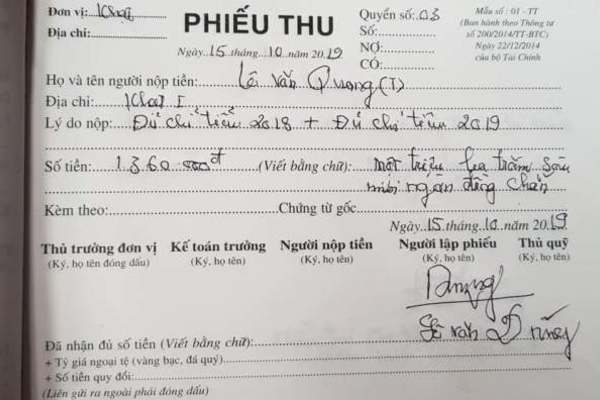 Đơn vị: Khai
Địa chỉ:
PHIẾU THU
Ngày 15 tháng 10 năm 2019
Quyển số: 03
Số:
NỢ:
CÓ:
Mẫu số : 01 - TT
(Ban hành theo Thông tư
số 200/2014/TT-BTC)
Ngày 22/12/2014
của bộ Tài Chính
Họ và tên người nộp tiền: Lê Văn (T)
Địa chỉ: I
Lý do nộp: 2018 + 2019
Số tiền: 1.360.000đ (Viết bằng chữ): một triệu ba trăm sáu
mươi ngàn đồng chẵn
Kèm theo: Chứng từ gốc
Ngày 15 tháng 10 năm 2019
Thủ trưởng đơn vị Kế toán trưởng Người nộp tiền Người lập phiếu Thủ quỹ
(Ký, họ tên đóng dấu) (Ký, họ tên) (Ký, họ tên) (Ký, họ tên) (Ký, họ tên)
Lê Văn
Đã nhận đủ số tiền (Viết bằng chữ):
+ Tỷ giá ngoại tệ (vàng bạc, đá quý)
+ Số tiền quy đổi:
(Liên gửi ra ngoài phải đóng dấu)